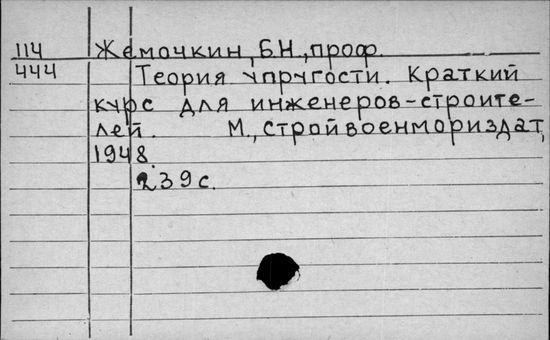 114 Жемочкин, Б.Н., проф.
444 Теория упругости. Краткий
курс для инженеров-строите-
лей. М., Стройвоенмориздат,
1948.
239 с.